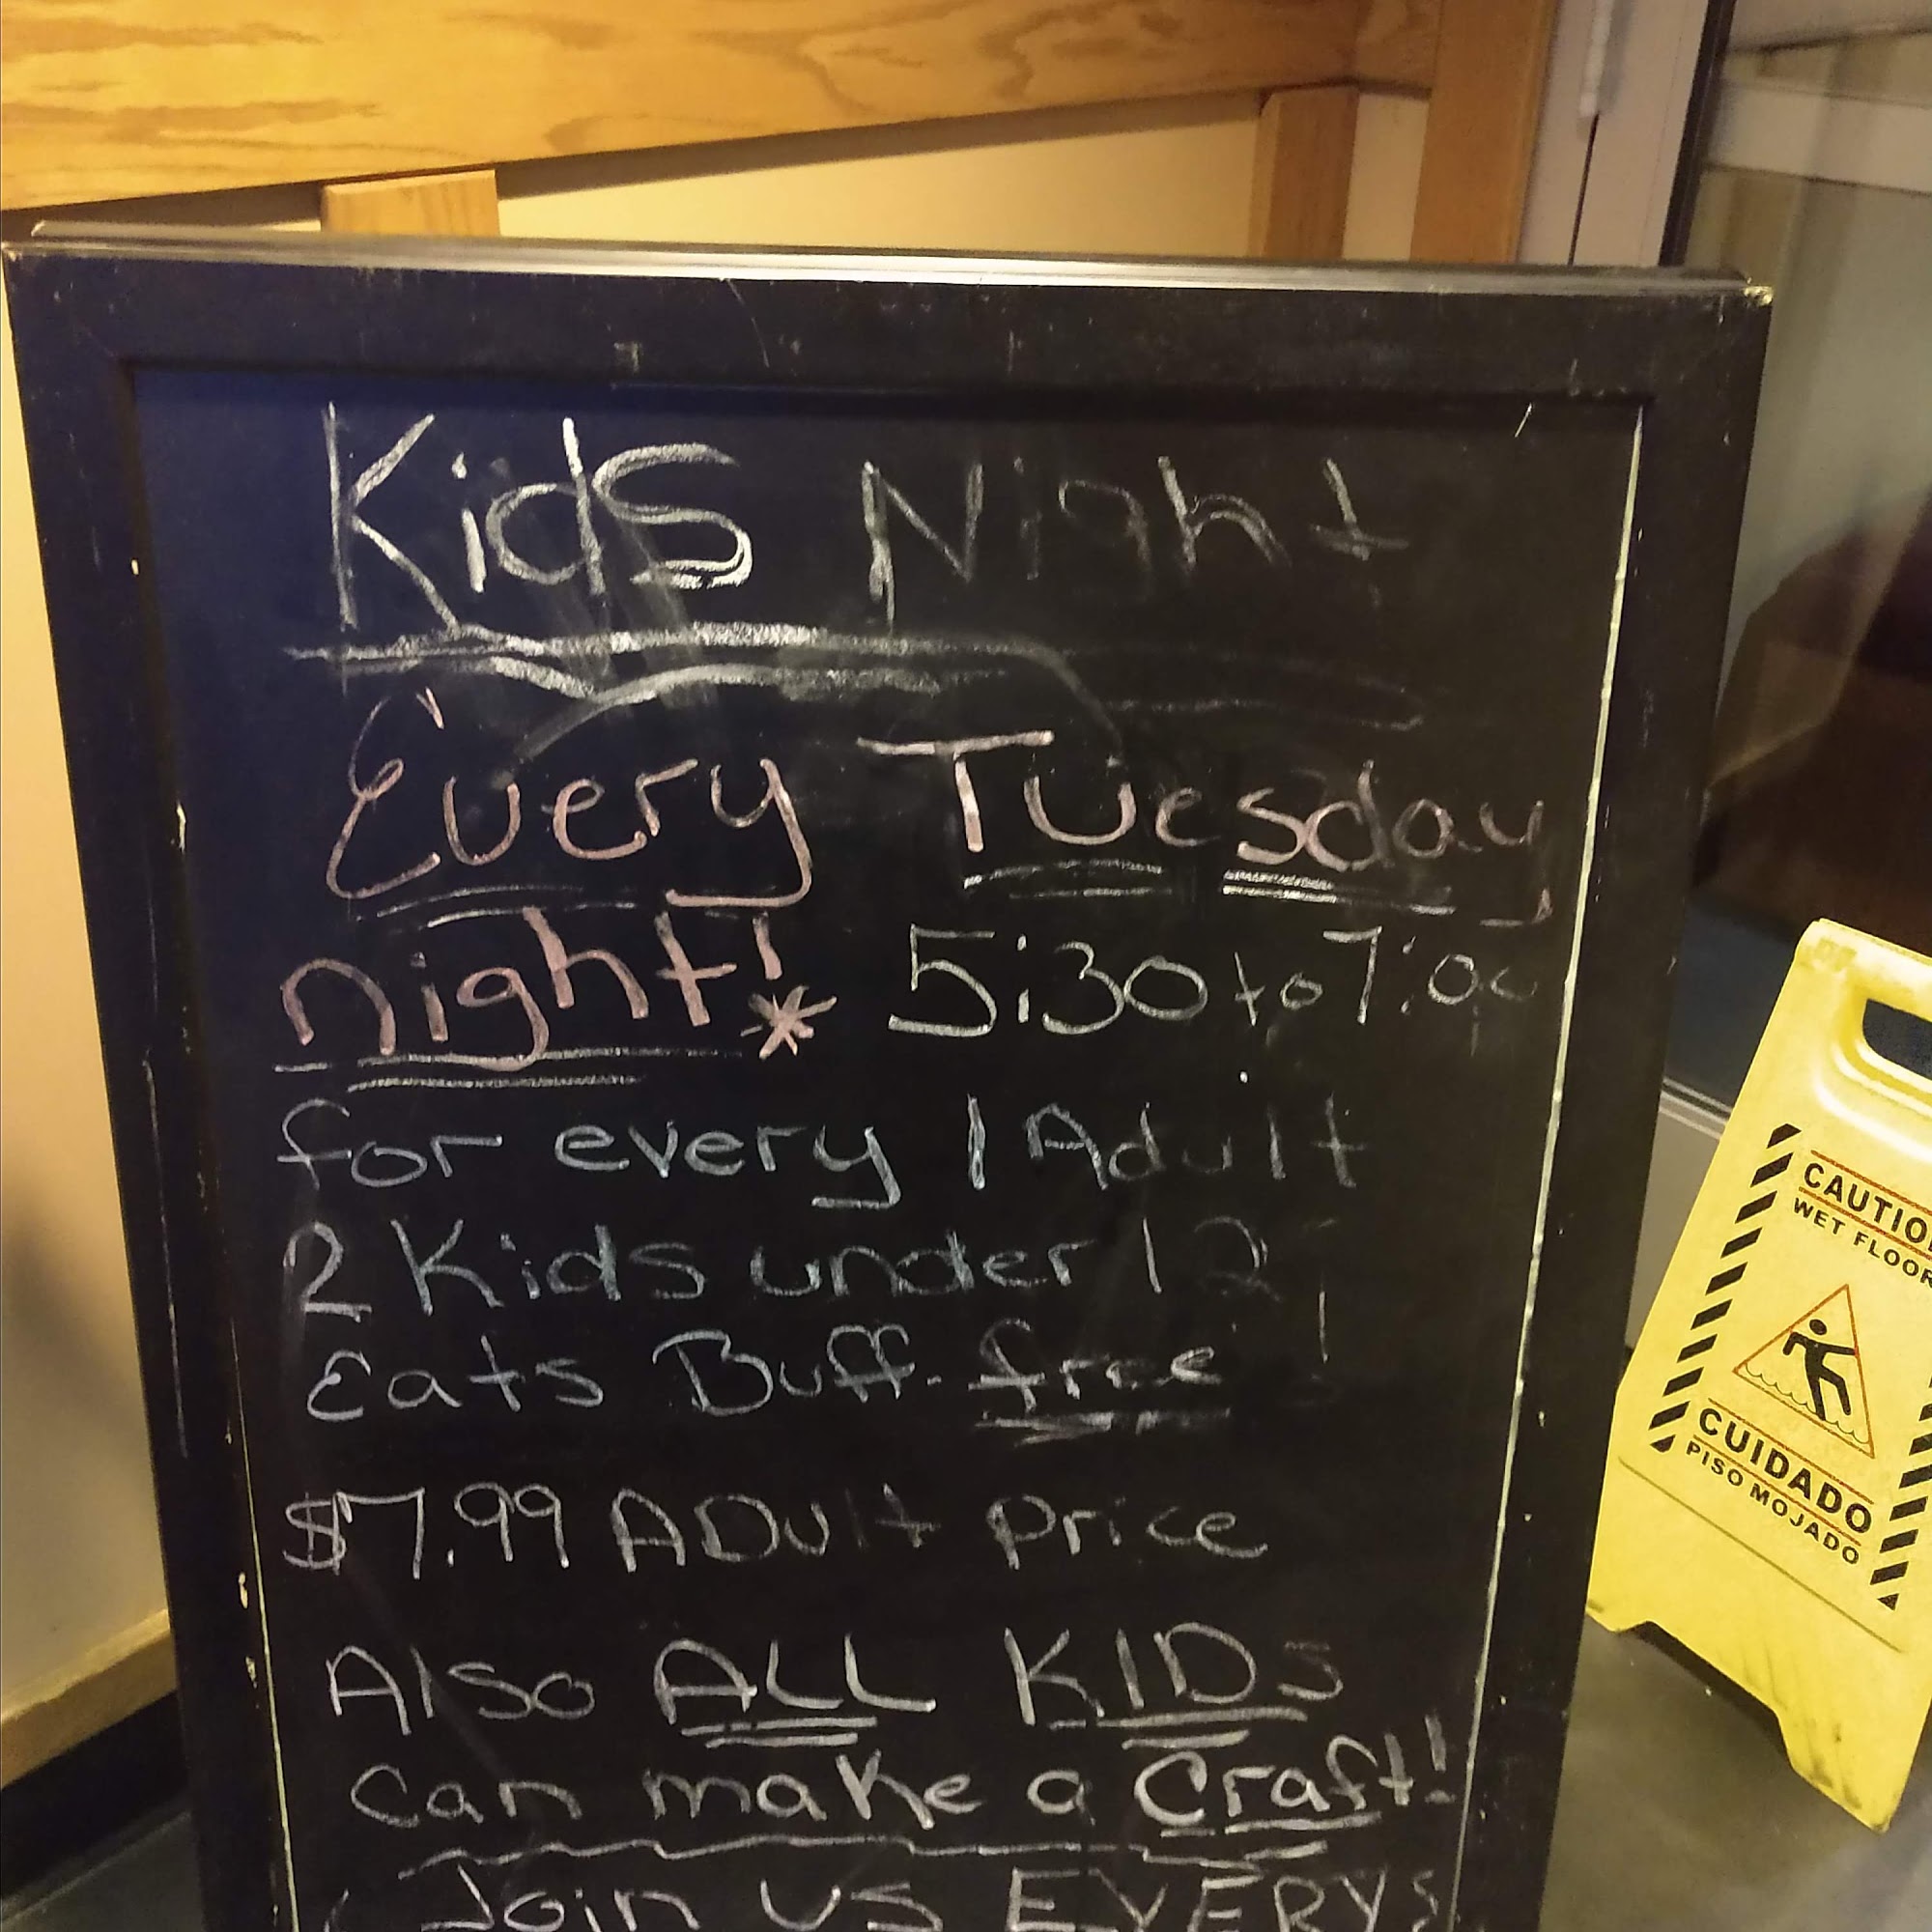 Kids Night
Every Tuesday
night! * 5:30 to 7:00
for every 1 Adult
2 Kids under 12
Eats Buff. free!
$7.99 ADult Price
Also ALL KIDS
can make a Craft!
Join us EVERY
CAUTIO
WET FLOOR
CUIDADO
PISO MOJADO